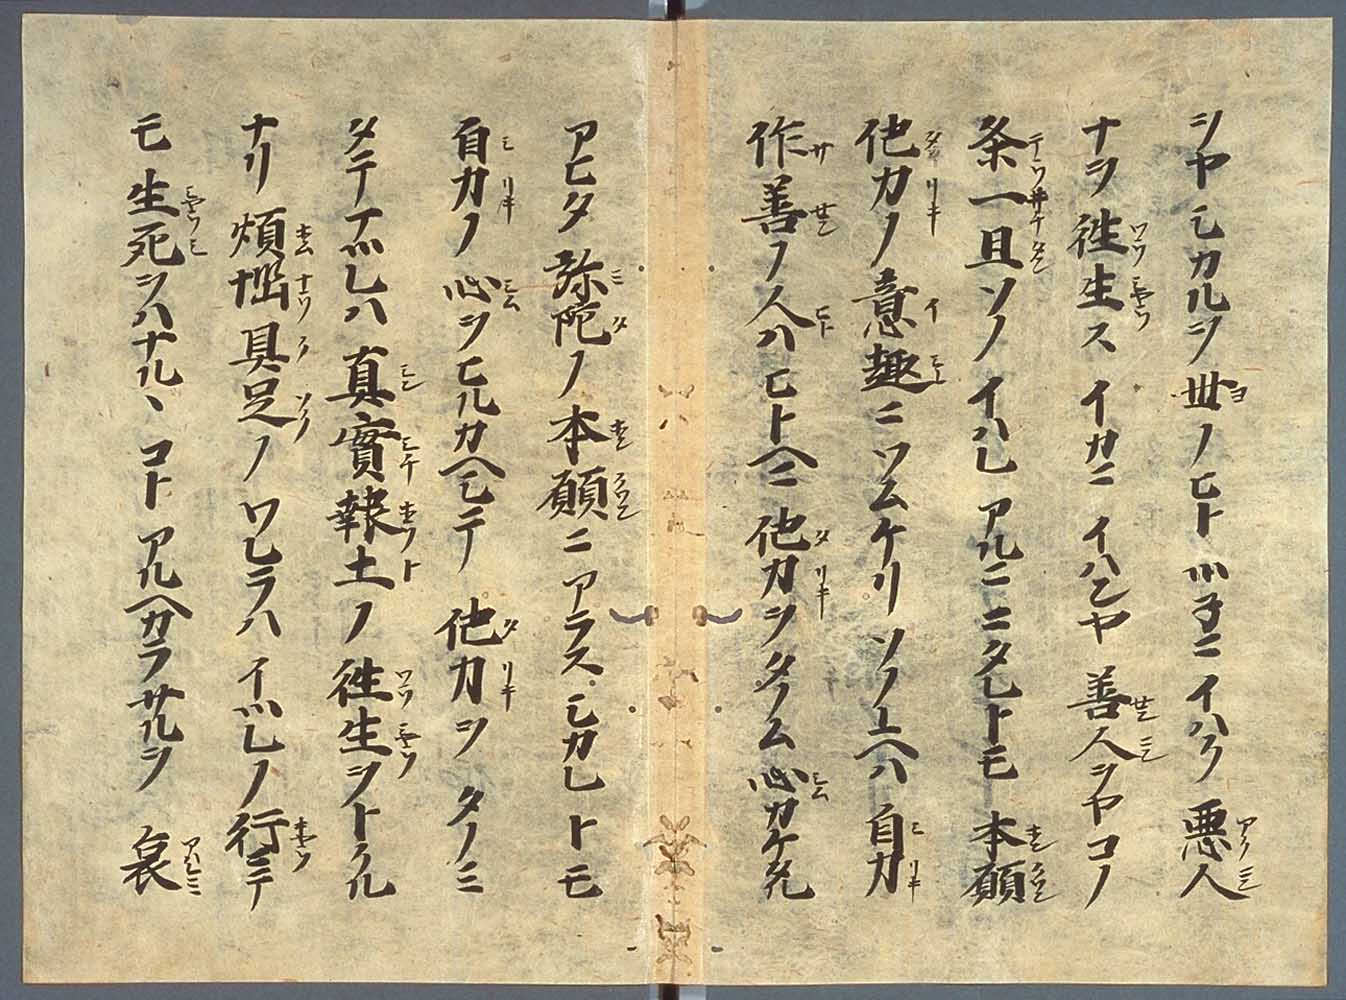 シヤシカルヲ世ノヒトツネニイハク悪人
ナヲ往生スイカニイハンヤ善人ヲヤコノ
条一旦ソノイハレアルニニタレトモ本願
他力ノ意趣ニソムケリソノユヘハ自力
作善ノ人ハヒトヘニ他力ヲタノム心カケタル
アヒタ弥陀ノ本願ニアラスシカレトモ
自力ノ心ヲヒルカヘシテ他力ヲタノミ
タテマツレハ真實報土ノ往生ヲトクル
ナリ煩悩具足ノワレラハイツレノ行ニテ
モ生死ヲハナルヽコトアルヘカラサルヲ哀